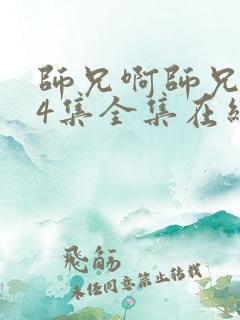 師兄啊師兄
4集全集在線
飛觞
未經同意禁止轉載